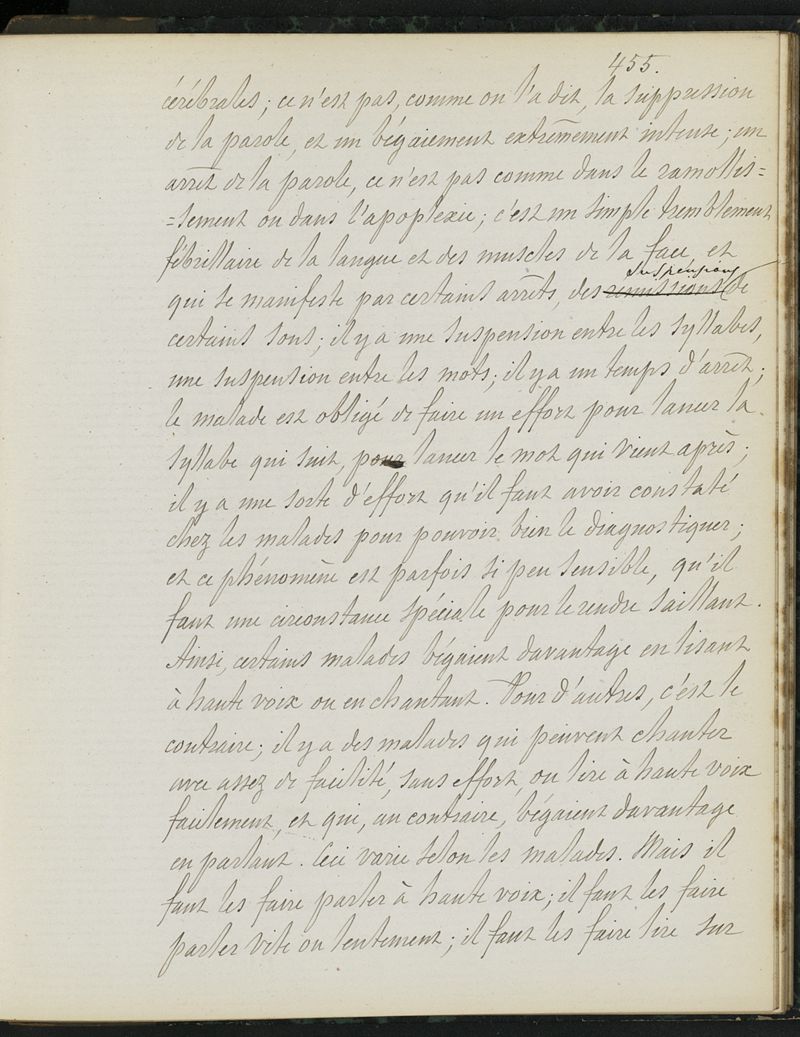 455.
cérébrales; ce n'est pas, comme on l'a dit, la suppression
de la parole, et un bégaiement extrêmement intense; un
arrêt de la parole, ce n'est pas comme dans le ramollis=
=sement ou dans l'apoplexie; c'est un simple tremblement
fébrillaire de la langue et des muscles de la face, et
suspensions
qui se manifeste par certains arrêts, des remissions de
certains sons; il y a une suspension entre les syllabes,
une suspension entre les mots; il y a un temps d'arrêt;
le malade est obligé de faire un effort pour lancer la
syllabe qui suit, pour lancer le mot qui vient après;
il y a une sorte d'effort qu'il faut avoir constaté
chez les malades pour pouvoir bien le diagnostiquer;
et ce phénomène est parfois si peu sensible, qu'il
faut une circonstance spéciale pour le rendre saillant.
Ainsi, certains malades bégaient davantage en lisant
à haute voix ou en chantant. Pour d'autres, c'est le
contraire; il y a des malades qui peuvent chanter
avec assez de facilité, sans effort, ou lire à haute voix
facilement, et qui, au contraire, bégaient davantage
en parlant. Ceci varie selon les malades. Mais il
faut les faire parler à haute voix; il faut les faire
parler vite ou lentement; il faut les faire lire sur